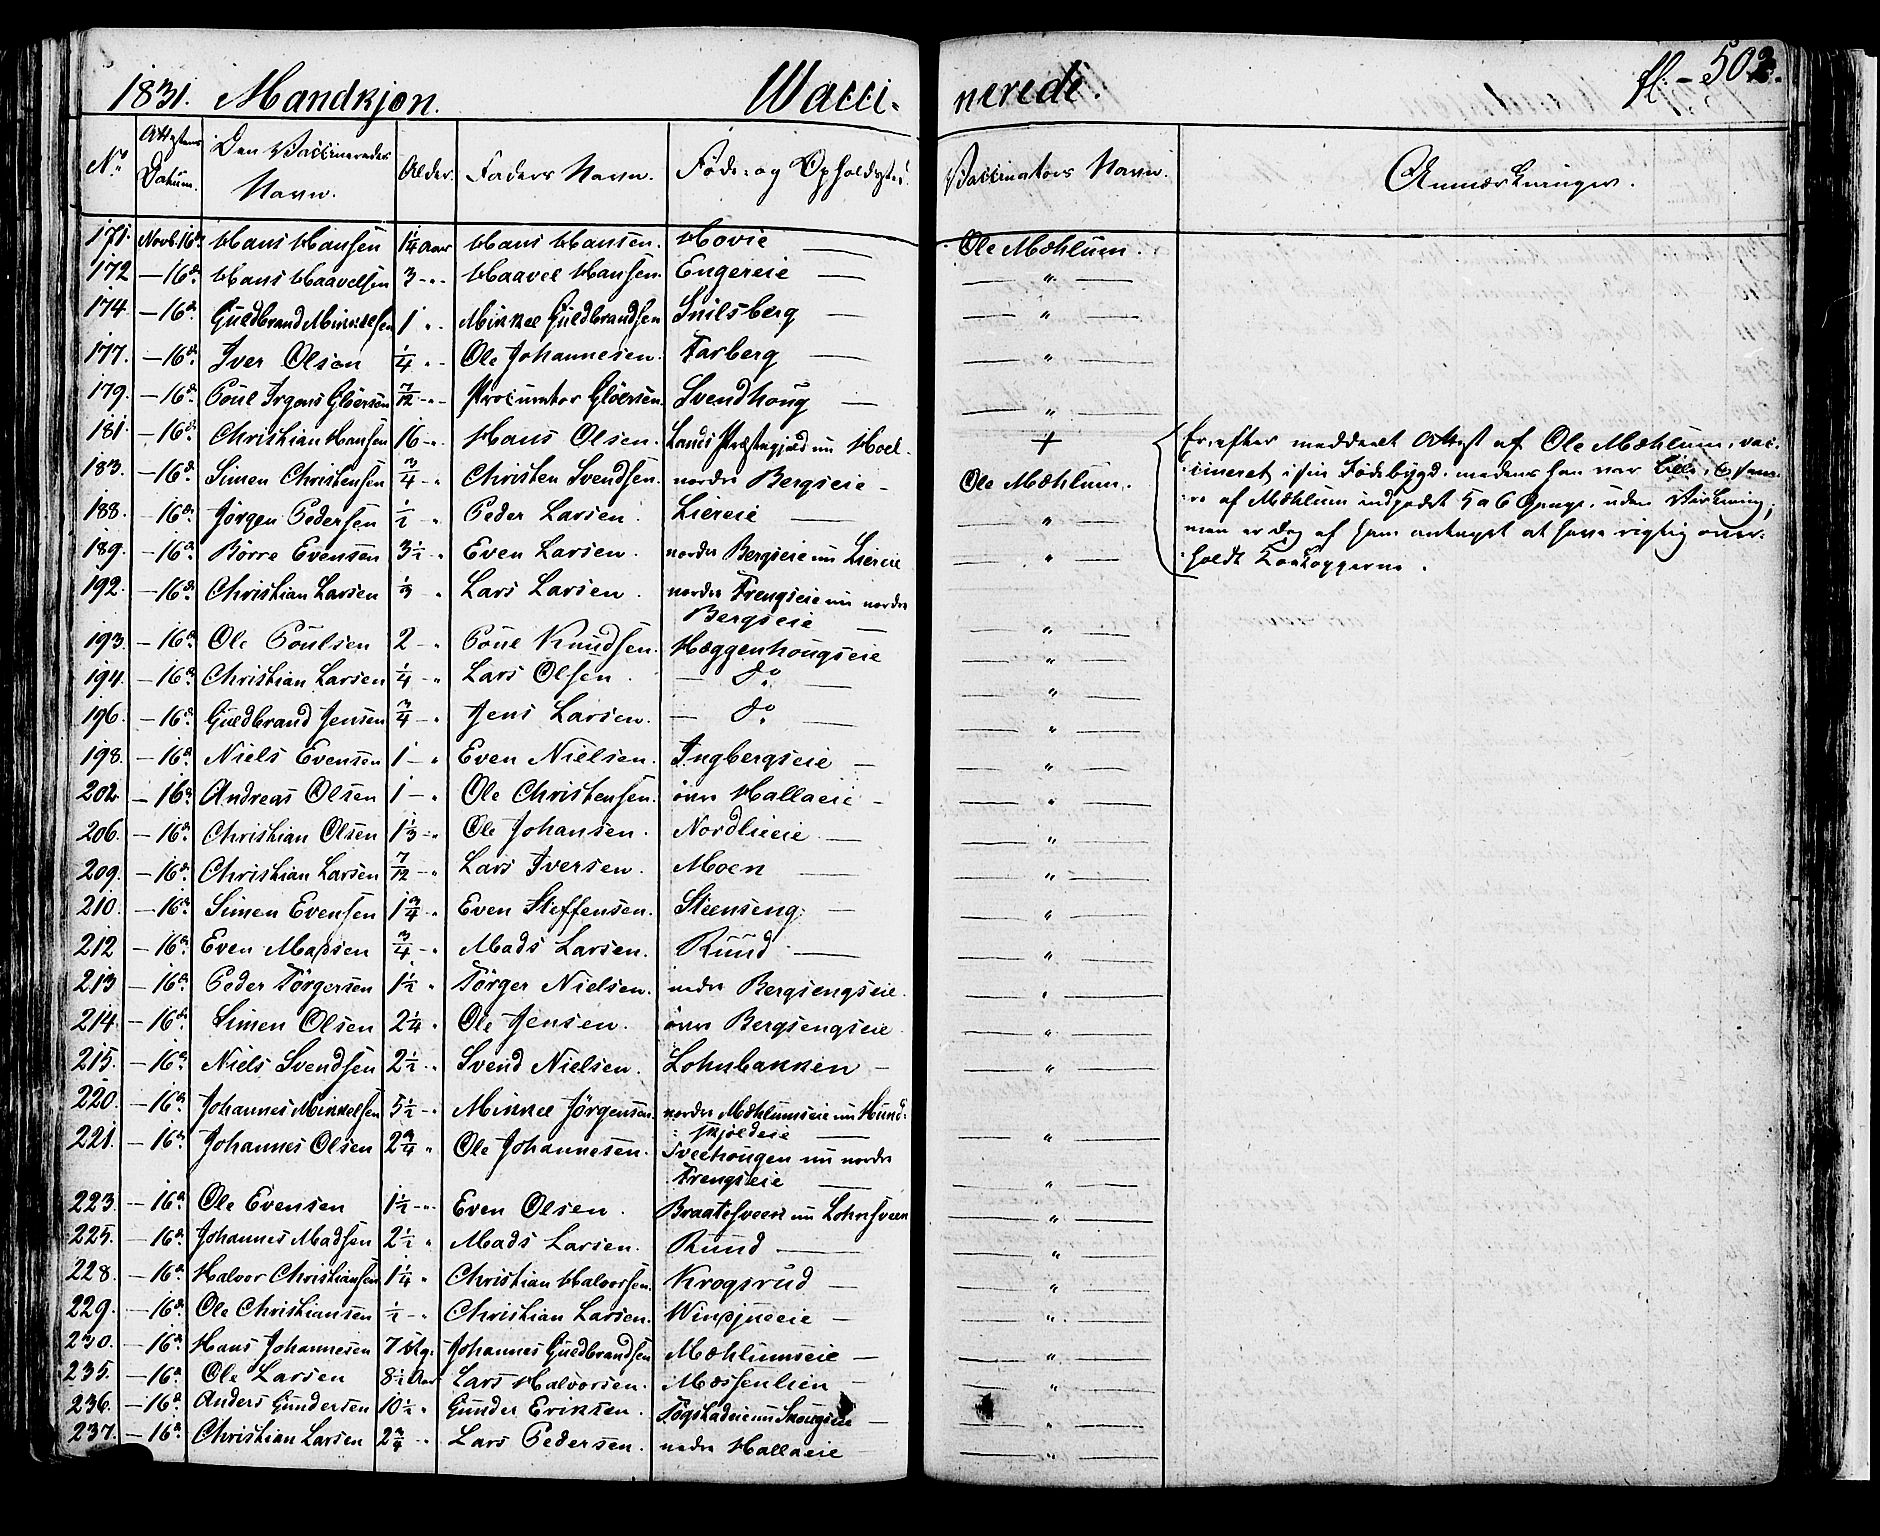 1831. Mandkjøn. Wacci- nerede. fl. - 502.
No Attestens Datum. Den Vaccineredes Navn. Alder. Faders Navn. Føde- og Opholdsted. Vaccinatørs Navn. Anmærkninger.
171. Novb. 16de Hans Hansen 1 1/4 Aar Hans Hansen. Hovie — Ole Mæhlum.
172 — 16d. Hans Haavelsen 3 - „ Haavel Hansen. Engereie — — „ —
174. — 16d. Guldbrand Mikkelsen 1 „ - Mikkel Guldbrandsen Snilsberg — — „ —
177. — 16d. Iver Olsen 1/4 „ - Ole Johannesen. Farberg — — „ —
179. — 16d. Poul Irgens Gløersen 7/12 - „ - Procurator Gløersen. Svendhoug — — „ —
181. — 16d. Christian Hansen 16 - „ Hans Olsen. Lands Præstegjeld nu Hoel - + Er, efter meddeelt Attest af Ole Mæhlum, vac-
cineret i sin Fødebygd, medens han var lille, &
af Mæhlum indpodet 5 a 6 Gange, uden Virkning,
men er dog af ham antaget at have rigtig over-
holdt Kookopperne.
183. — 16d. Simen Christensen 3/4 - „ Christen Svendsen. nordre Bergseie - Ole Mæhlum.
188. — 16d. Jørgen Pedersen 1/2 „ Peder Larsen. Liereie — — „ —
189. — 16d. Børre Evensen 3 1/2 - „ Even Larsen. nordre Bergseie nu Liereie — „ —
192. — 16d. Christian Larsen 1/3 „ Lars Larsen. nordre Frengseie nu nordre
Bergseie — — „ —
193. — 16d. Ole Poulsen 2 - „ Poul Knudsen. Hæggenhougseie — „ —
194. — 16d. Christian Larsen 1/4 - „ Lars Olsen. — do — — „ —
196. — 16d. Guldbrand Jensen 3/4 - „ Jens Larsen. — do — — „ —
198. — 16d. Niels Evensen 1 - „ Even Nielsen. Ingbergseie — — „ —
202. — 16d. Andreas Olsen 1 - „ Ole Christensen. øvre Hallaeie - — „ —
206. — 16d. Christian Olsen 1 1/3 - „ Ole Johansen. Nordlieeie — — „ —
209. — 16d. Christian Larsen 7/12 - „ Lars Iversen. Moen — — „ —
210. — 16d. Simen Evensen 1 3/4 - „ Even Steffensen. Steenseng. — — „ —
212 — 16d. Even Madsen 3/4 - „ Mads Larsen. Ruud — — „ —
213 — 16d. Peder Tørgersen 1 1/2 „ Tørger Nielsen. nedre Bergsengseie. — „ —
214. — 16d. Simen Olsen 2 1/4 „ Ole Jensen. øvre Bergsengseie — „ —
215. — 16d. Niels Svendsen 2 1/2 - „ Svend Nielsen. Lohnbakken — — „ —
220. — 16d. Johannes Mikkelsen 5 1/2 - „ Mikkel Jørgensen. nordre Mæhlumseie nu Hund-
skjoldeie — — „ —
221. — 16d. Johannes Olsen 2 3/4 „ Ole Johannesen. Tveehougen nu nordre
Frengseie — — „ —
223. — 16d. Ole Evensen 1 1/2 - „ Even Olsen. Braatesveen nu Lohnsveen — „ —
225. — 16d. Johannes Madsen 2 1/2 „ Mads Larsen. Ruud — — „ —
228. — 16d. Halvor Christiansen 1 1/4 „ Christian Halvorsen. Krogsrud — — „ —
229. — 16d. Ole Christiansen 1/2 - „ Christian Larsen. — — „ —
230. — 16d. Hans Johannesen 7 Johannes Guldbrandsen Mæhlumseie — — „ —
235. — 16d. Ole Larsen 8 1/2 Aar Lars Halvorsen. Mæssenlien — — „ —
236. — 16d. Anders Gundersen 10 1/2 „ Gunder Eriksen. Fogstadeie nu Skougseie — — „ —
237. — 16d. Christian Larsen 2 3/4 - „ Lars Pedersen. nedre Hallaeie — — „ —